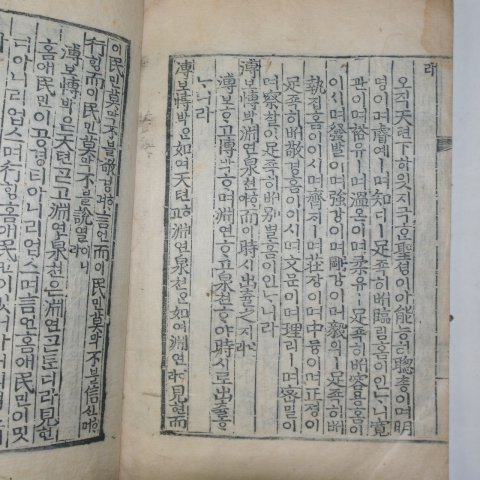 라
오직天텬下하앳지극ᄒᆞᆫ聖셩이아能능히聰총ᄒᆞ며明
명ᄒᆞ며睿예ᄒᆞ며知디ㅣ足족히ᄡᅥ臨림홈이인ᄂᆞ니寬
관이며裕유ㅣ며溫온이며柔유ㅣ足족히ᄡᅥ容용홈이
이시며發발이며强강이며剛강이며毅의足족히ᄡᅥ
執집홈이이시며齊ᄌᆡㅣ며莊장이며中듕이며正졍이
足족히ᄡᅥ敬경홈이이시며文문이며理리ㅣ며密밀이
며察찰이足족히ᄡᅥ別별홈이인ᄂᆞ니라
溥보博박淵연泉쳔ᄒᆞ야而이時시出츌之지라
溥보ᄒᆞ고博박ᄒᆞ며淵연ᄒᆞ고泉쳔ᄒᆞ야時시로出츌ᄒᆞ
ᄂᆞ니라
溥보博박은如여天텬ᄒᆞ고淵연泉쳔은如여淵연ᄒᆞ니라見현而
이民민莫막不블敬경ᄒᆞ며言언而이民민莫막不블信신ᄒᆞ며
行ᄒᆡᆼ而이民민莫막不블說열이니라
溥보博박은天텬ᄀᆞᆮ고淵연泉쳔은淵연ᄀᆞᆮᄐᆞ니라見현
홈애民민이공경티아니리업스며言언홈애民민이밋
디아니리업스며行ᄒᆡᆼ홈애民민이